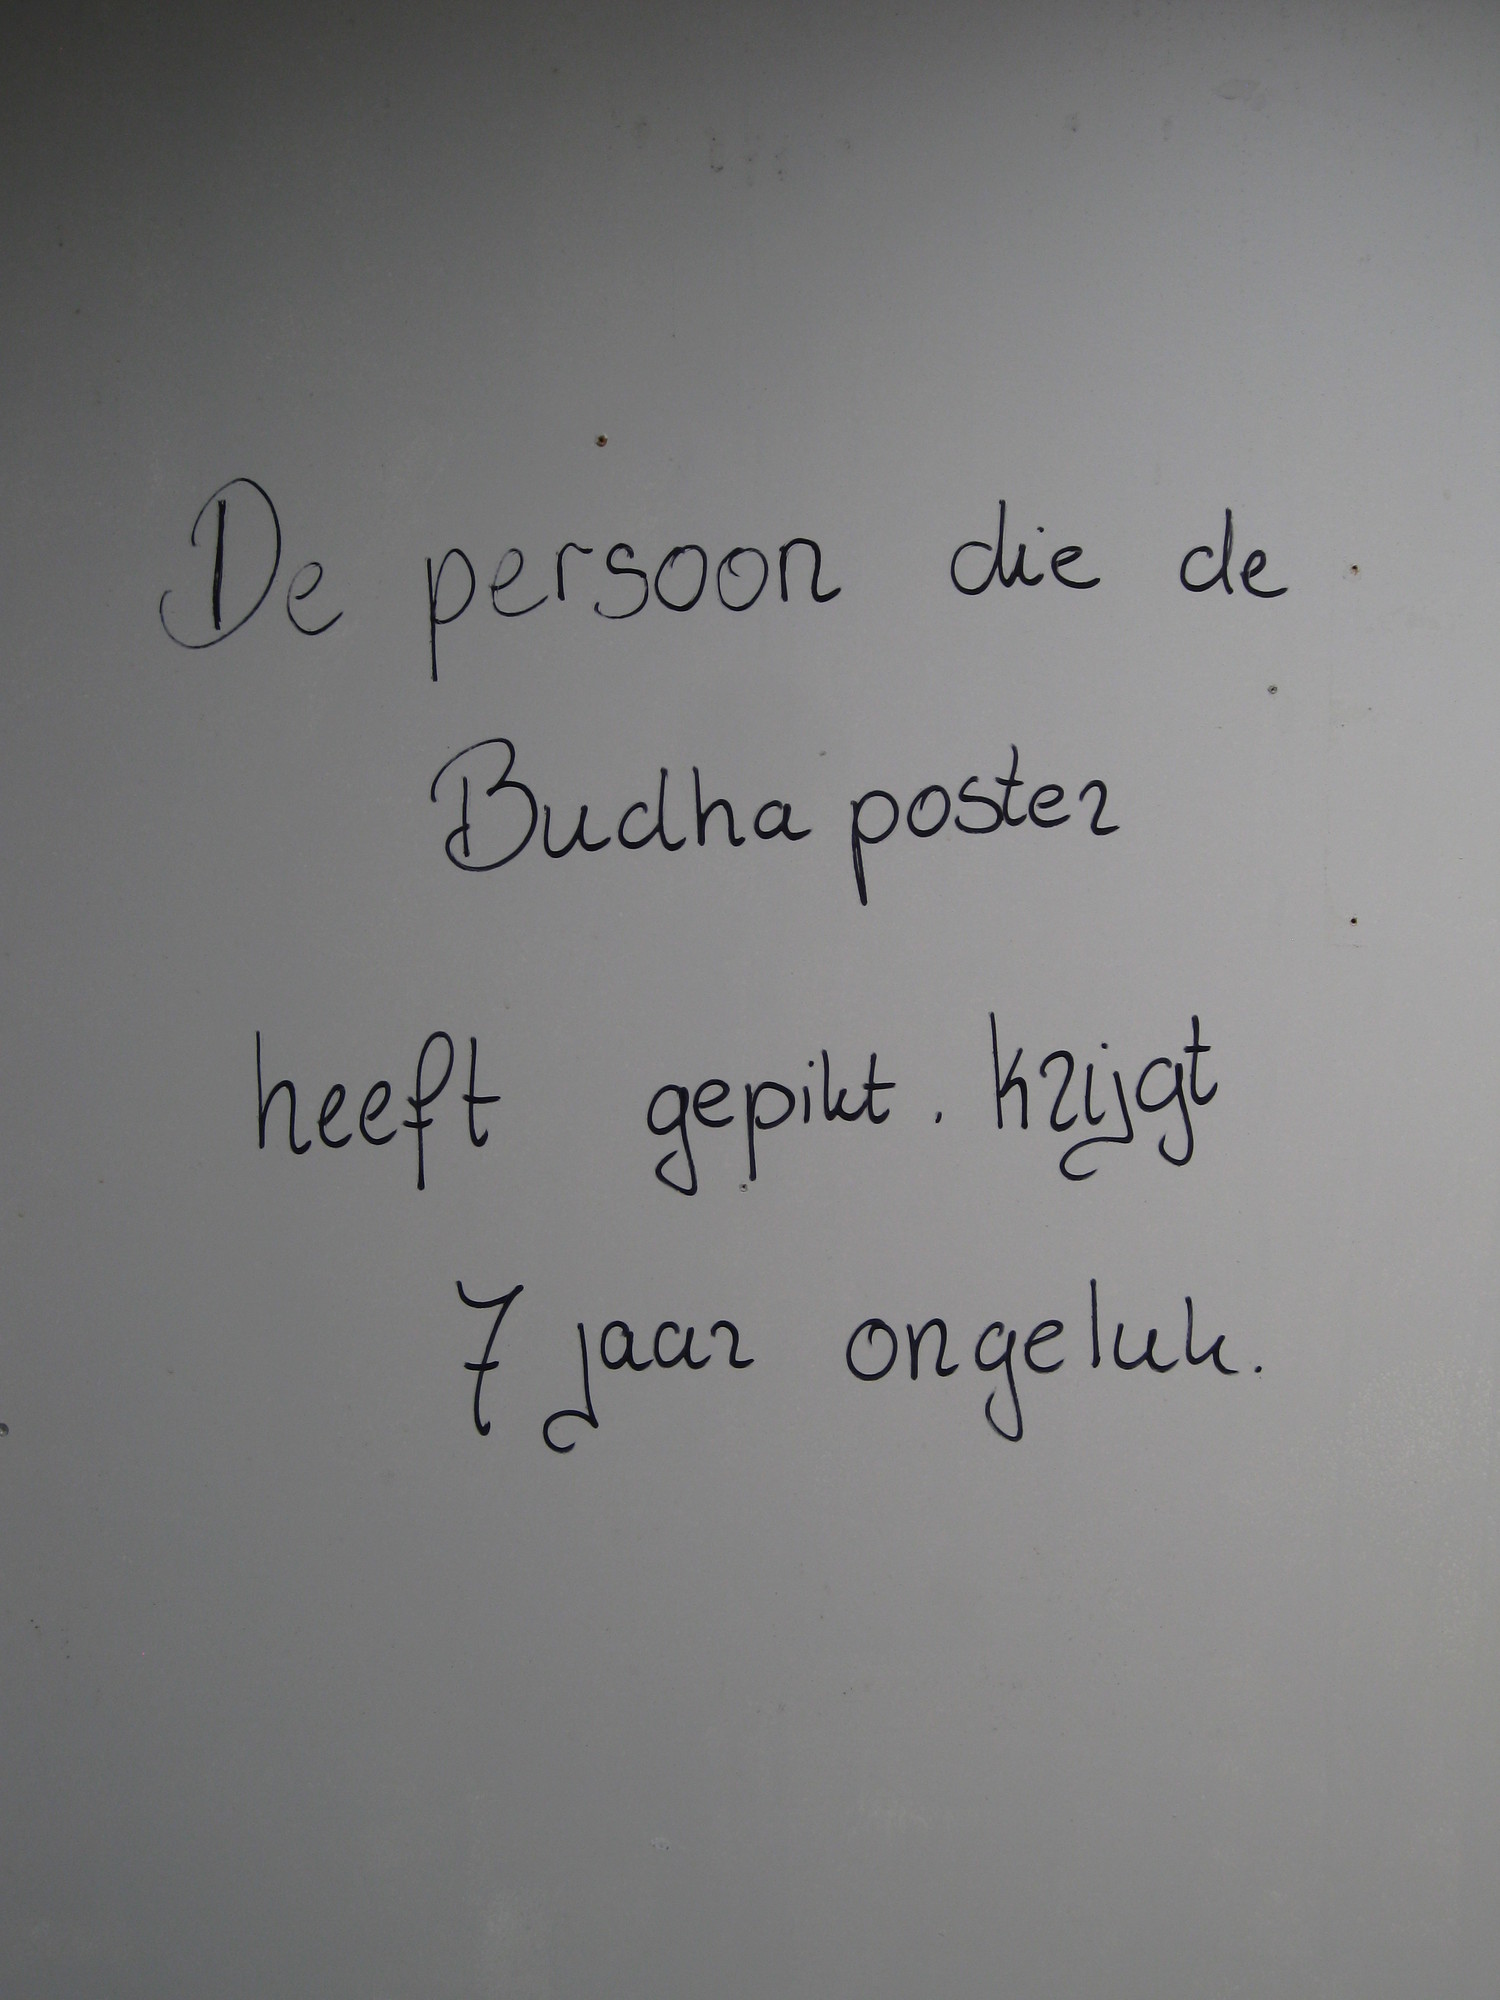 De persoon die de
Budha poster
heeft gepikt. krijgt
7 jaar ongeluk.